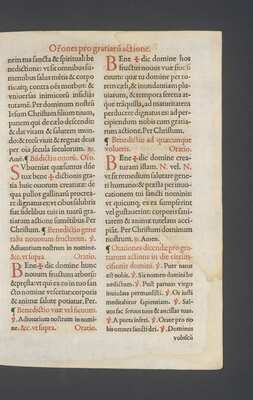 Orones pro gratiarũ actione.
nem tua sancta & spirituali be
nedictione: vt sit omnibus su-
mentibus salus mẽtis & corpo
ris: atq; contra oẽs morbos: &
vniuersas inimicorũ insidias
tutamẽ. Per dominum nostrũ
Iesum Christum filium tuum,
panem qui de cælo descendit:
& dat vitam & salutem mun-
do: & tecũ viuit & regnat deus
per oĩa secula seculorum. ℞.
Amẽ. ¶ Bñdictio
Subueniat quæsumus dñe
tuæ bene✠dictionis gra-
tia huic ouorum creaturæ: vt
qua pollos gallinarũ procrea-
re dignatur: ex ea cibus salubris
fiat fidelibus tuis in tuarũ gra-
tiarum actione sumẽtibus Per
Christum. ¶ Benedictio gene
ralis nouorum fructuum. ℣.
Adiutorium nostrum in nomine.
&c. vt supra. Oratio.
BEne✠dic domine hunc
nouum fructum arboris:
& presta: vt qui ex eo in tuo san
cto nomine vescẽtur: corporis
& animæ salute potiatur. Per.
¶ Benedictio vuæ vel ficuum.
℣. Adiutorium nostrum in nomi-
ne. &c. vt supra. Oratio.
BEne✠dic domine hos
fructus nouos vuæ siue fi-
cuum: quæ tu domine per ro-
rem cæli, & inundantiam plu-
uiarum, & tempora serena at-
que trãquilla, ad maturitatem
perducere dignatus es: ad per-
cipiendum nobis cum gratia-
rum actione. Per Christum.
¶ Benedictio ad quæcumque
volueris. Oratio.
BEne✠dic domine crea-
turam istam. N. vel. N.
vt sit remedium salutare gene-
ri humano: & præsta per inuo-
cationem tui sancti nominis:
vt quicunq; ex ea sumpserint
vel gustauerint: corporis sani-
tatem & animæ tutelam acci-
piãt. Per Christum dominum
nostrum. ℞. Amen.
¶ Orationes dicendæ pro gra-
tiarum actione in die circun-
cisionis domini. ℣. Puer natus
est nobis. ℣. Sit nomen domini be
nedictum. ℣. Post partum virgo
inuiolata permansisti. ℣. Os iusti
meditabitur sapientiam. ℣. Sal-
uos fac seruos tuos & ancillas tuas.
℣. A porta inferi. ℣. Orate pro no
bis omnes sancti dei. ℣. Dominus
vobiscũ